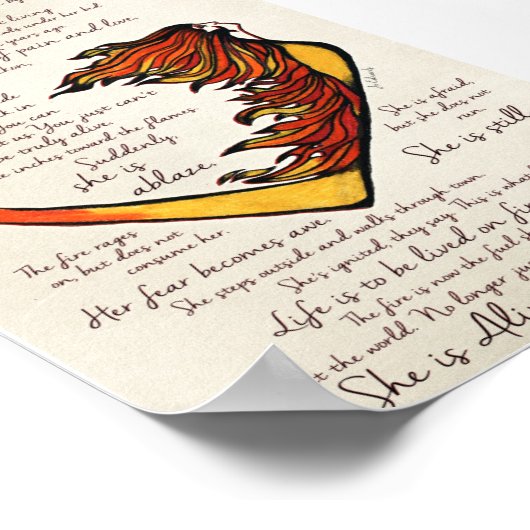 living
under her bed
years ago.
pain and love.
in
You can
us. You just can't
truly alive
inches toward the flames.
Suddenly,
she is
ablaze.
She is afraid,
but she does not
run.
She is still
The fire rages
on, but does not
consume her.
Her fear becomes awe.
She steps outside and walks through town.
She's ignited, they say. This is what
Life is to be lived on fire
The fire is now the fuel
the world. No longer
She is Alive